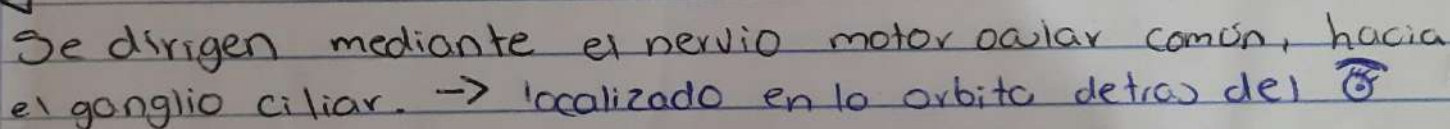 Se dirigen mediante el nervio motor ocular común, hacia
el ganglio ciliar. → localizado en la orbita detras del